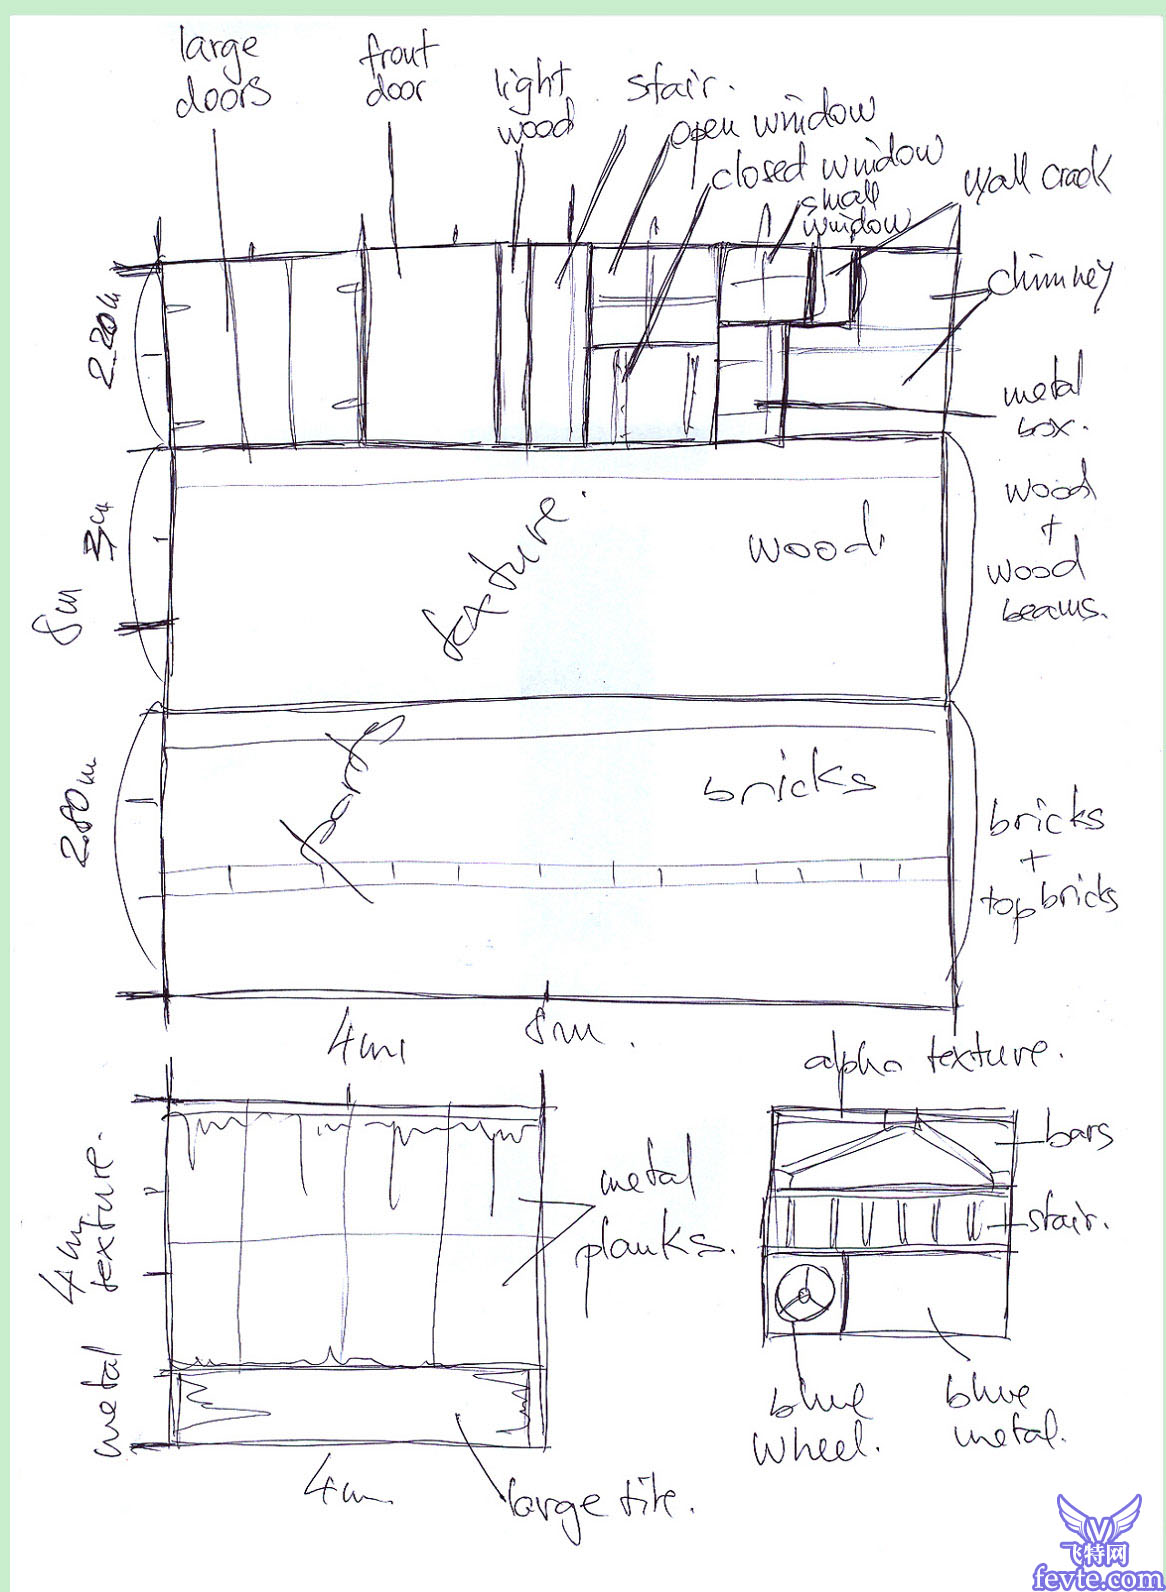 large
doors
front
door
light
wood
stair.
open window
closed window
small
window
wall crack
chimney
2.20m
metal
box.
3m
8m
texture.
wood
wood
+
wood
beams.
2.80m
parts
bricks
bricks
+
top bricks
4m
8m.
alpha texture.
4m
texture.
metal
planks.
bars
stair.
metal
4m
large tile.
blue
wheel.
blue
metal.
飞特网
fevte.com